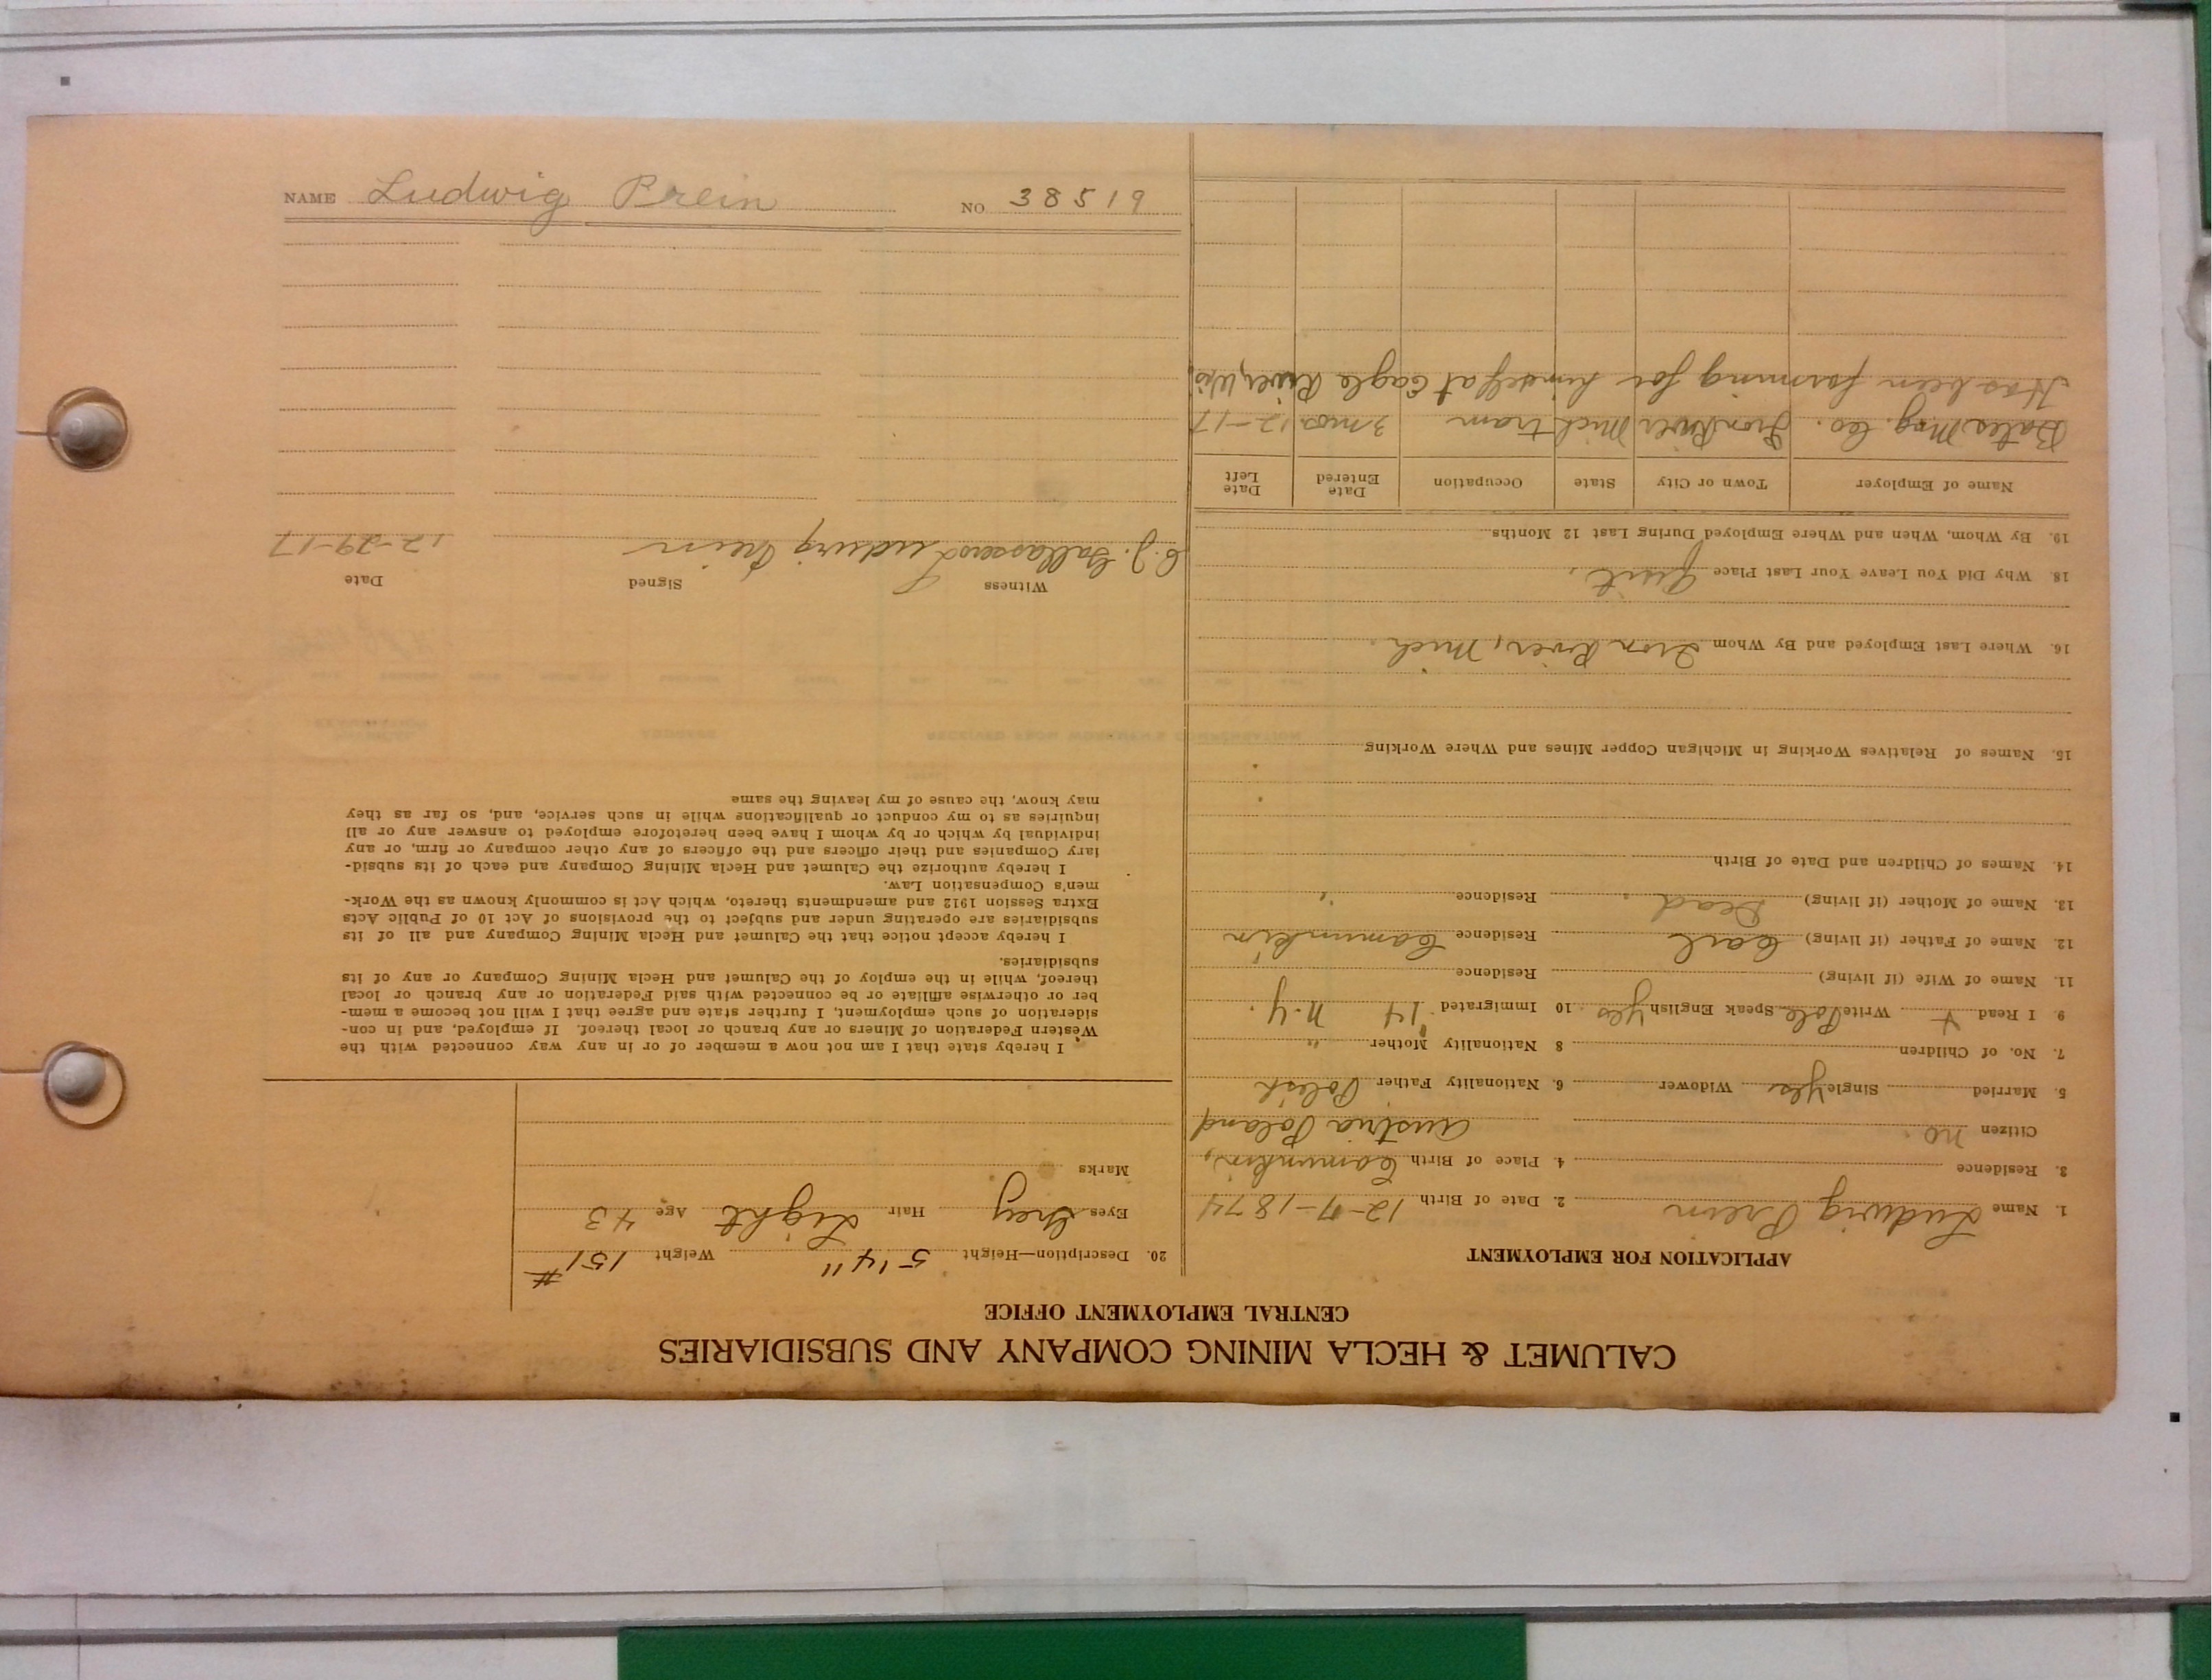 CALUMET & HECLA MINING COMPANY AND SUBSIDIARIES
CENTRAL EMPLOYMENT OFFICE
APPLICATION FOR EMPLOYMENT
1. Name Ludwig Prein 2. Date of Birth 12-7-1874
3. Residence 4. Place of Birth
Citizen no. Austria Poland
5. Married Single yes Widower 6. Nationality Father Polish
7. No. of Children 8 Nationality Mother "
9. I Read + Write Pole Speak English yes 10 Immigrated '14 N.Y.
11. Name of Wife (if living) Residence
12. Name of Father (if living) Carl Residence
13. Name of Mother (if living) Dead. Residence "
14. Names of Children and Date of Birth
15. Names of Relatives Working in Michigan Copper Mines and Where Working
16. Where Last Employed and By Whom Iron River, Mich.
18. Why Did You Leave Your Last Place Quit.
19. By Whom, When and Where Employed During Last 12 Months
Name of Employer Town or City State Occupation Date Entered Date Left
Bates Mng. Co. Iron River Mich tram 3 mos. 12-17
Has been farming for himself at Eagle River, Wis.
20. Description—Height 5'4" Weight 151#
Eyes Grey Hair Light Age 43
Marks
I hereby state that I am not now a member of or in any way connected with the
Western Federation of Miners or any branch or local thereof. If employed, and in con-
sideration of such employment, I further state and agree that I will not become a mem-
ber or otherwise affiliate or be connected with said Federation or any branch or local
thereof, while in the employ of the Calumet and Hecla Mining Company or any of its
subsidiaries.
I hereby accept notice that the Calumet and Hecla Mining Company and all of its
subsidiaries are operating under and subject to the provisions of Act 10 of Public Acts
Extra Session 1912 and amendments thereto, which Act is commonly known as the Work-
men's Compensation Law.
I hereby authorize the Calumet and Hecla Mining Company and each of its subsid-
iary Companies and their officers and the officers of any other company or firm, or any
individual by which or by whom I have been heretofore employed to answer any or all
inquiries as to my conduct or qualifications while in such service, and, so far as they
may know, the cause of my leaving the same
Witness Signed Date
Ludwig Prein 12-29-17
NAME Ludwig Prein NO 38519